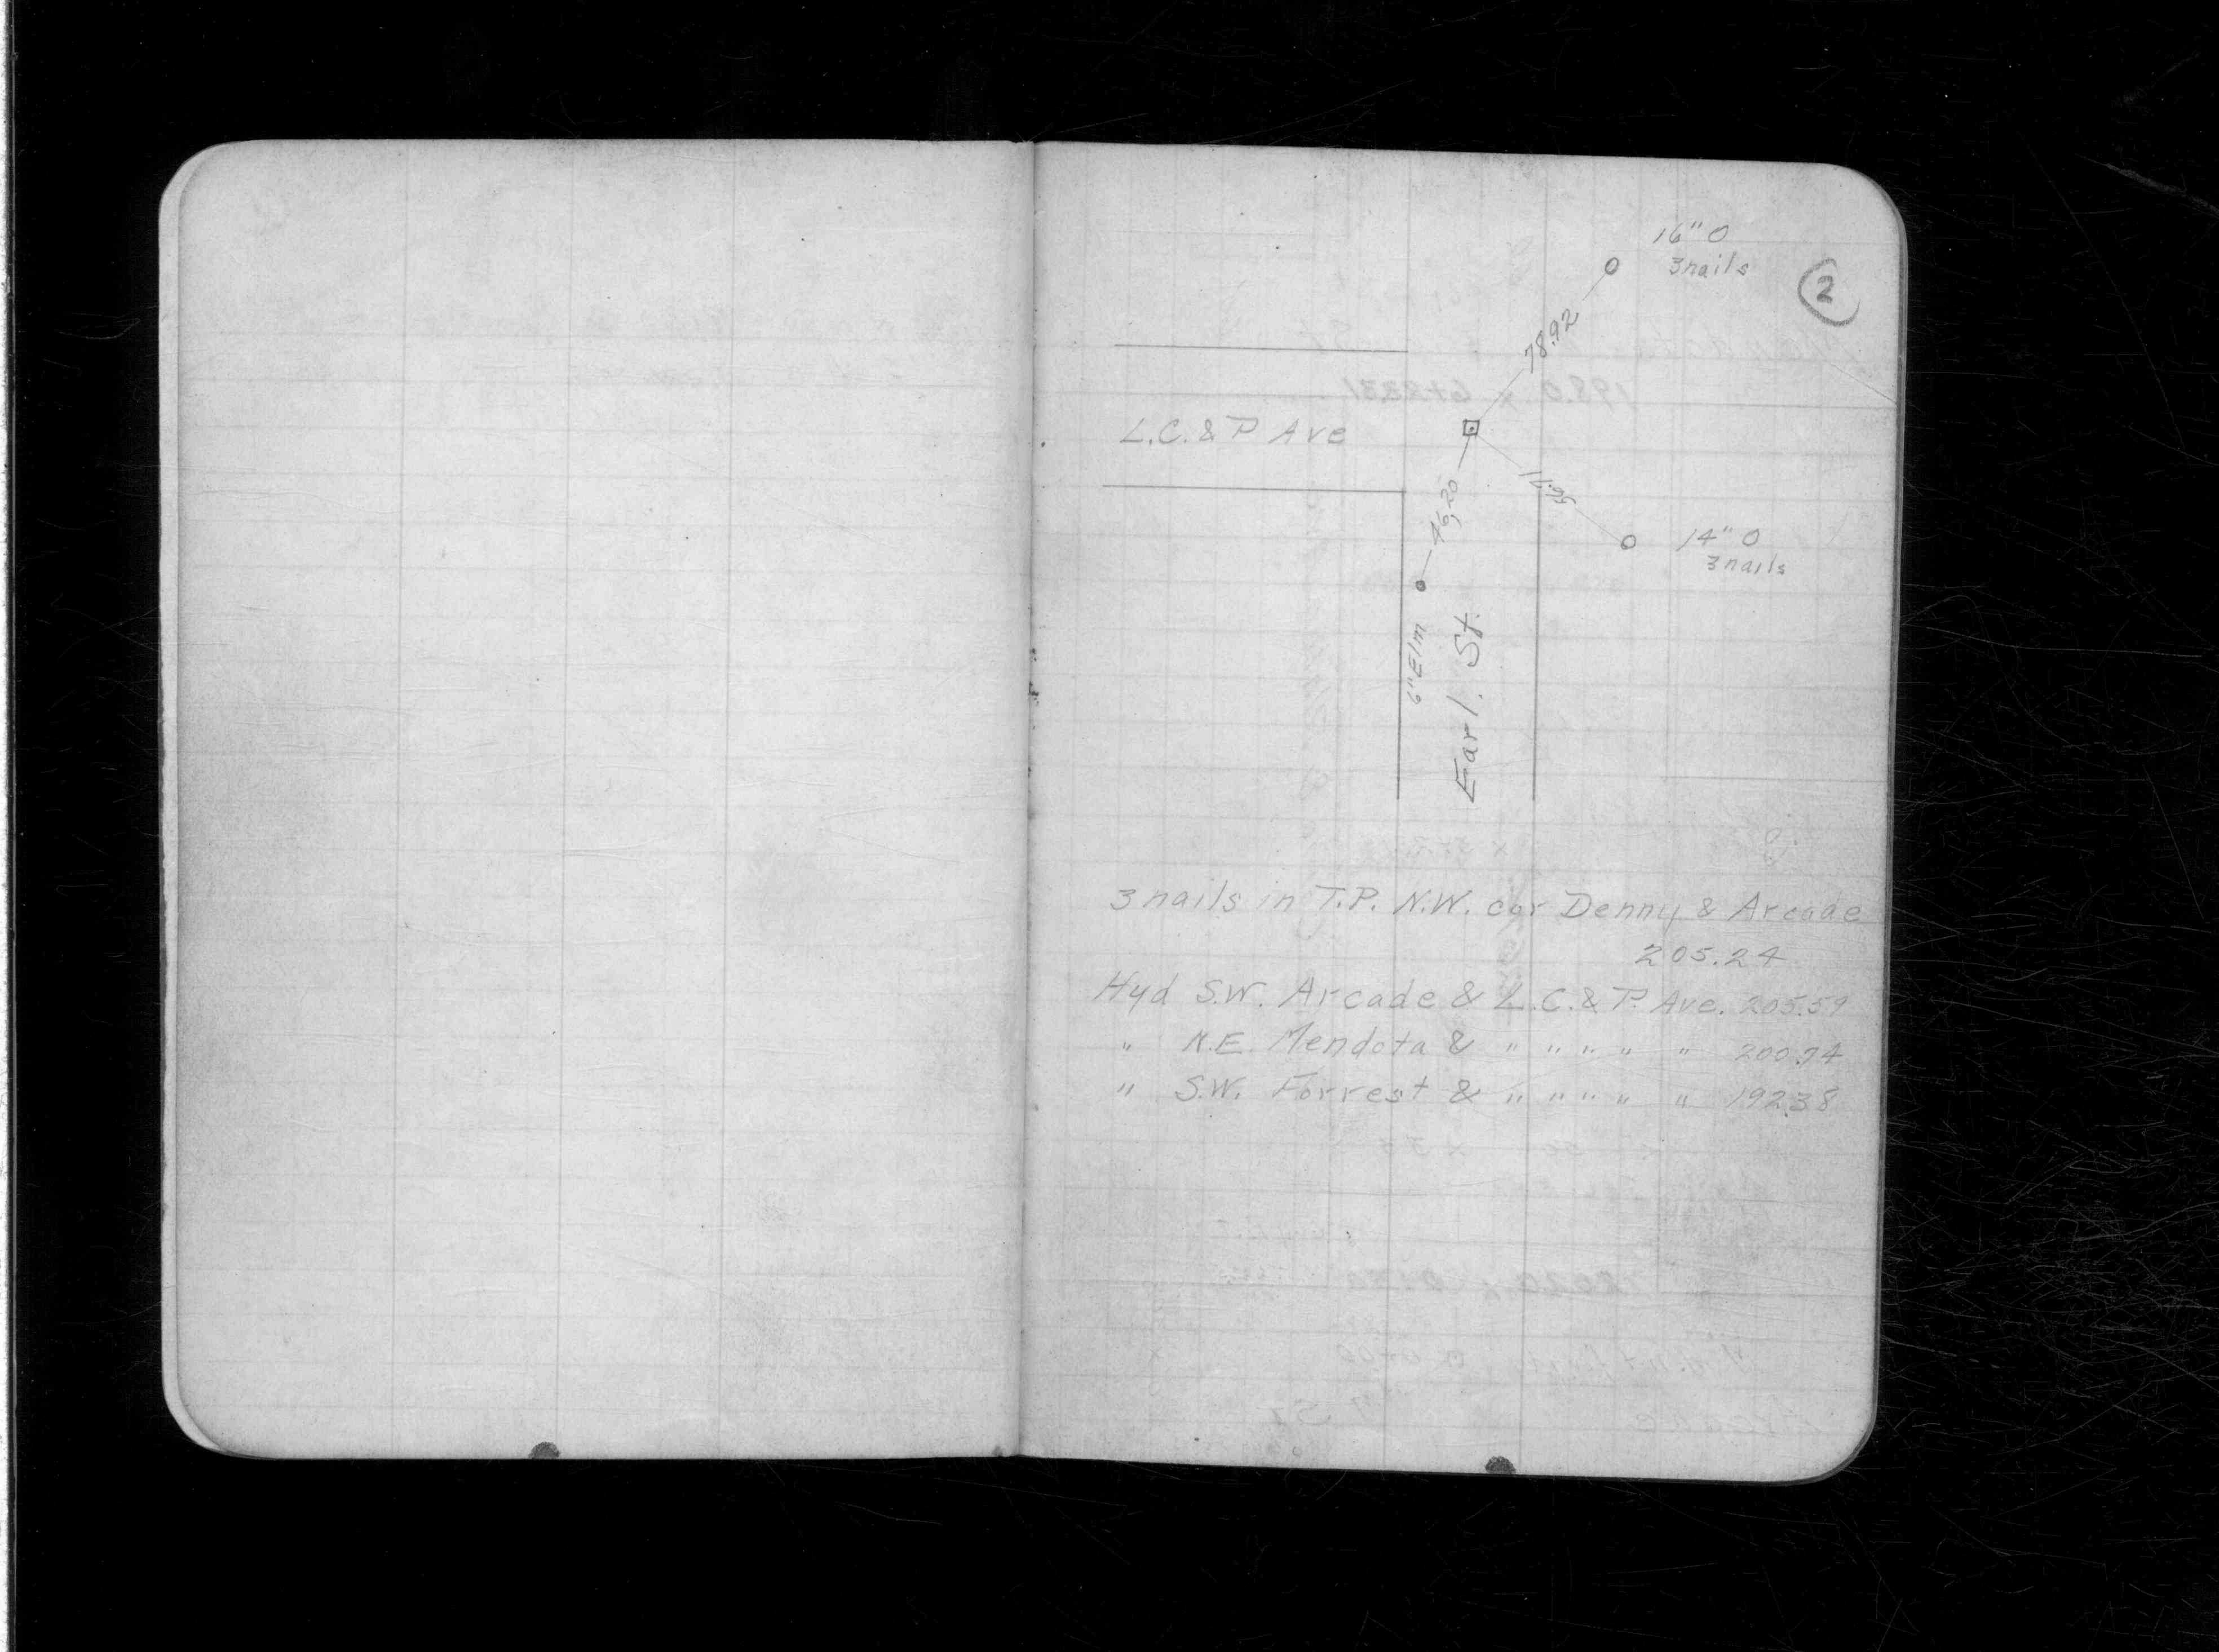 2
16" O
3 nails
78.92
L.C. & P Ave
46.20
14" O
3 nails
6" Elm
Earl. St.
3 nails in T.P. N.W. cor Denny & Arcade
205.24
Hyd S.W. Arcade & L.C. & P. Ave. 205.59
" N.E. Mendota & " " " " " 200.74
" S.W. Forrest & " " " " " 192.38